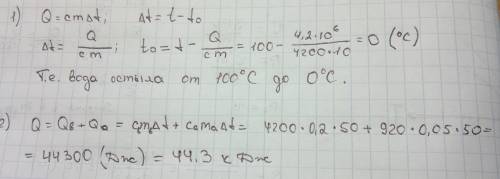 1) Q = cmΔt, Δt = t - t₀
Δt = Q/cm; t₀ = t - Q/cm = 100 - 4,2·10⁶/4200·10 = 0 (°C)
Т.е. вода остыла от 100°C до 0°C.
2) Q = Qв + Qа = cвmвΔt + cаmаΔt = 4200·0,2·50 + 920·0,05·50 =
= 44300 (Дж) = 44,3 кДж